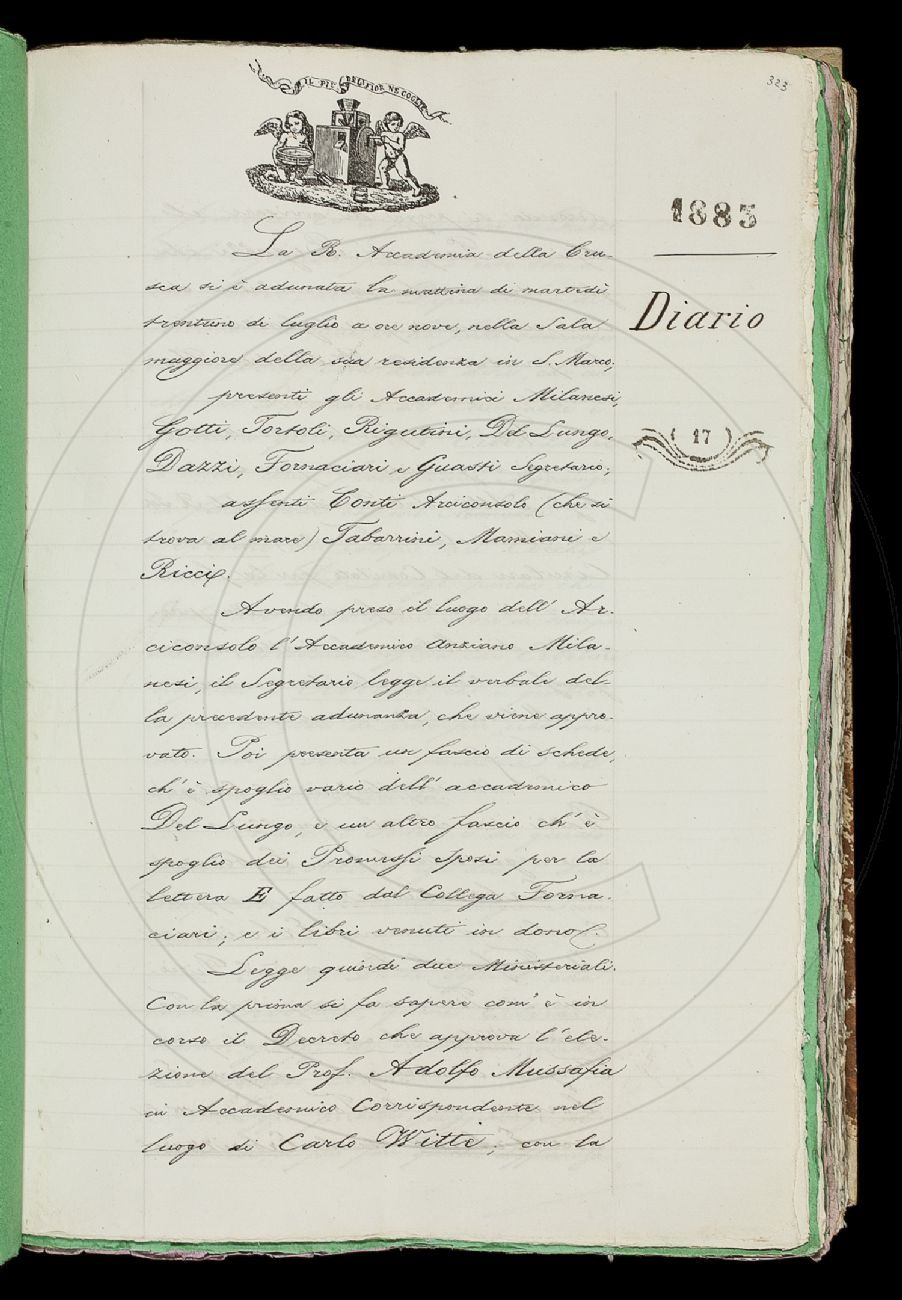 IL PIÙ BEL FIOR NE COGLIE
323
1883
Diario
( 17 )
La R. Accademia della Cru-
sca si è adunata la mattina di martedì
trentuno di luglio a ore nove, nella Sala
maggiore della sua residenza in S. Marco,
presenti gli Accademici Milanesi,
Gotti, Tortoli, Rigutini, Del Lungo,
Dazzi, Fornaciari e Guasti Segretario;
assenti Conti Arciconsolo (che si
trova al mare) Tabarrini, Mamiani e
Ricci.
Avendo preso il luogo dell' Ar-
ciconsolo l'Accademico anziano Mila-
nesi, il Segretario legge il verbale del-
la precedente adunanza, che viene appro-
vato. Poi presenta un fascio di schede,
ch' è spoglio vario dell' accademico
Del Lungo, e un altro fascio ch' è
spoglio dei Promessi Sposi per la
lettera E fatto dal Collega Forna-
ciari; e i libri venuti in dono.
Legge quindi due Ministeriali.
Con la prima si fa sapere com' è in
corso il Decreto che approva l' ele-
zione del Prof. Adolfo Mussafia
in Accademico Corrispondente nel
luogo di Carlo Witte; con la